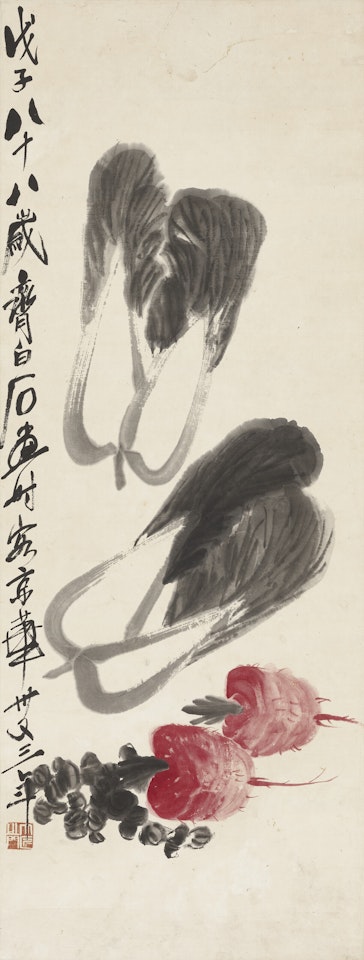 戊子八十八歲齊白石畫时客京華卅又三年